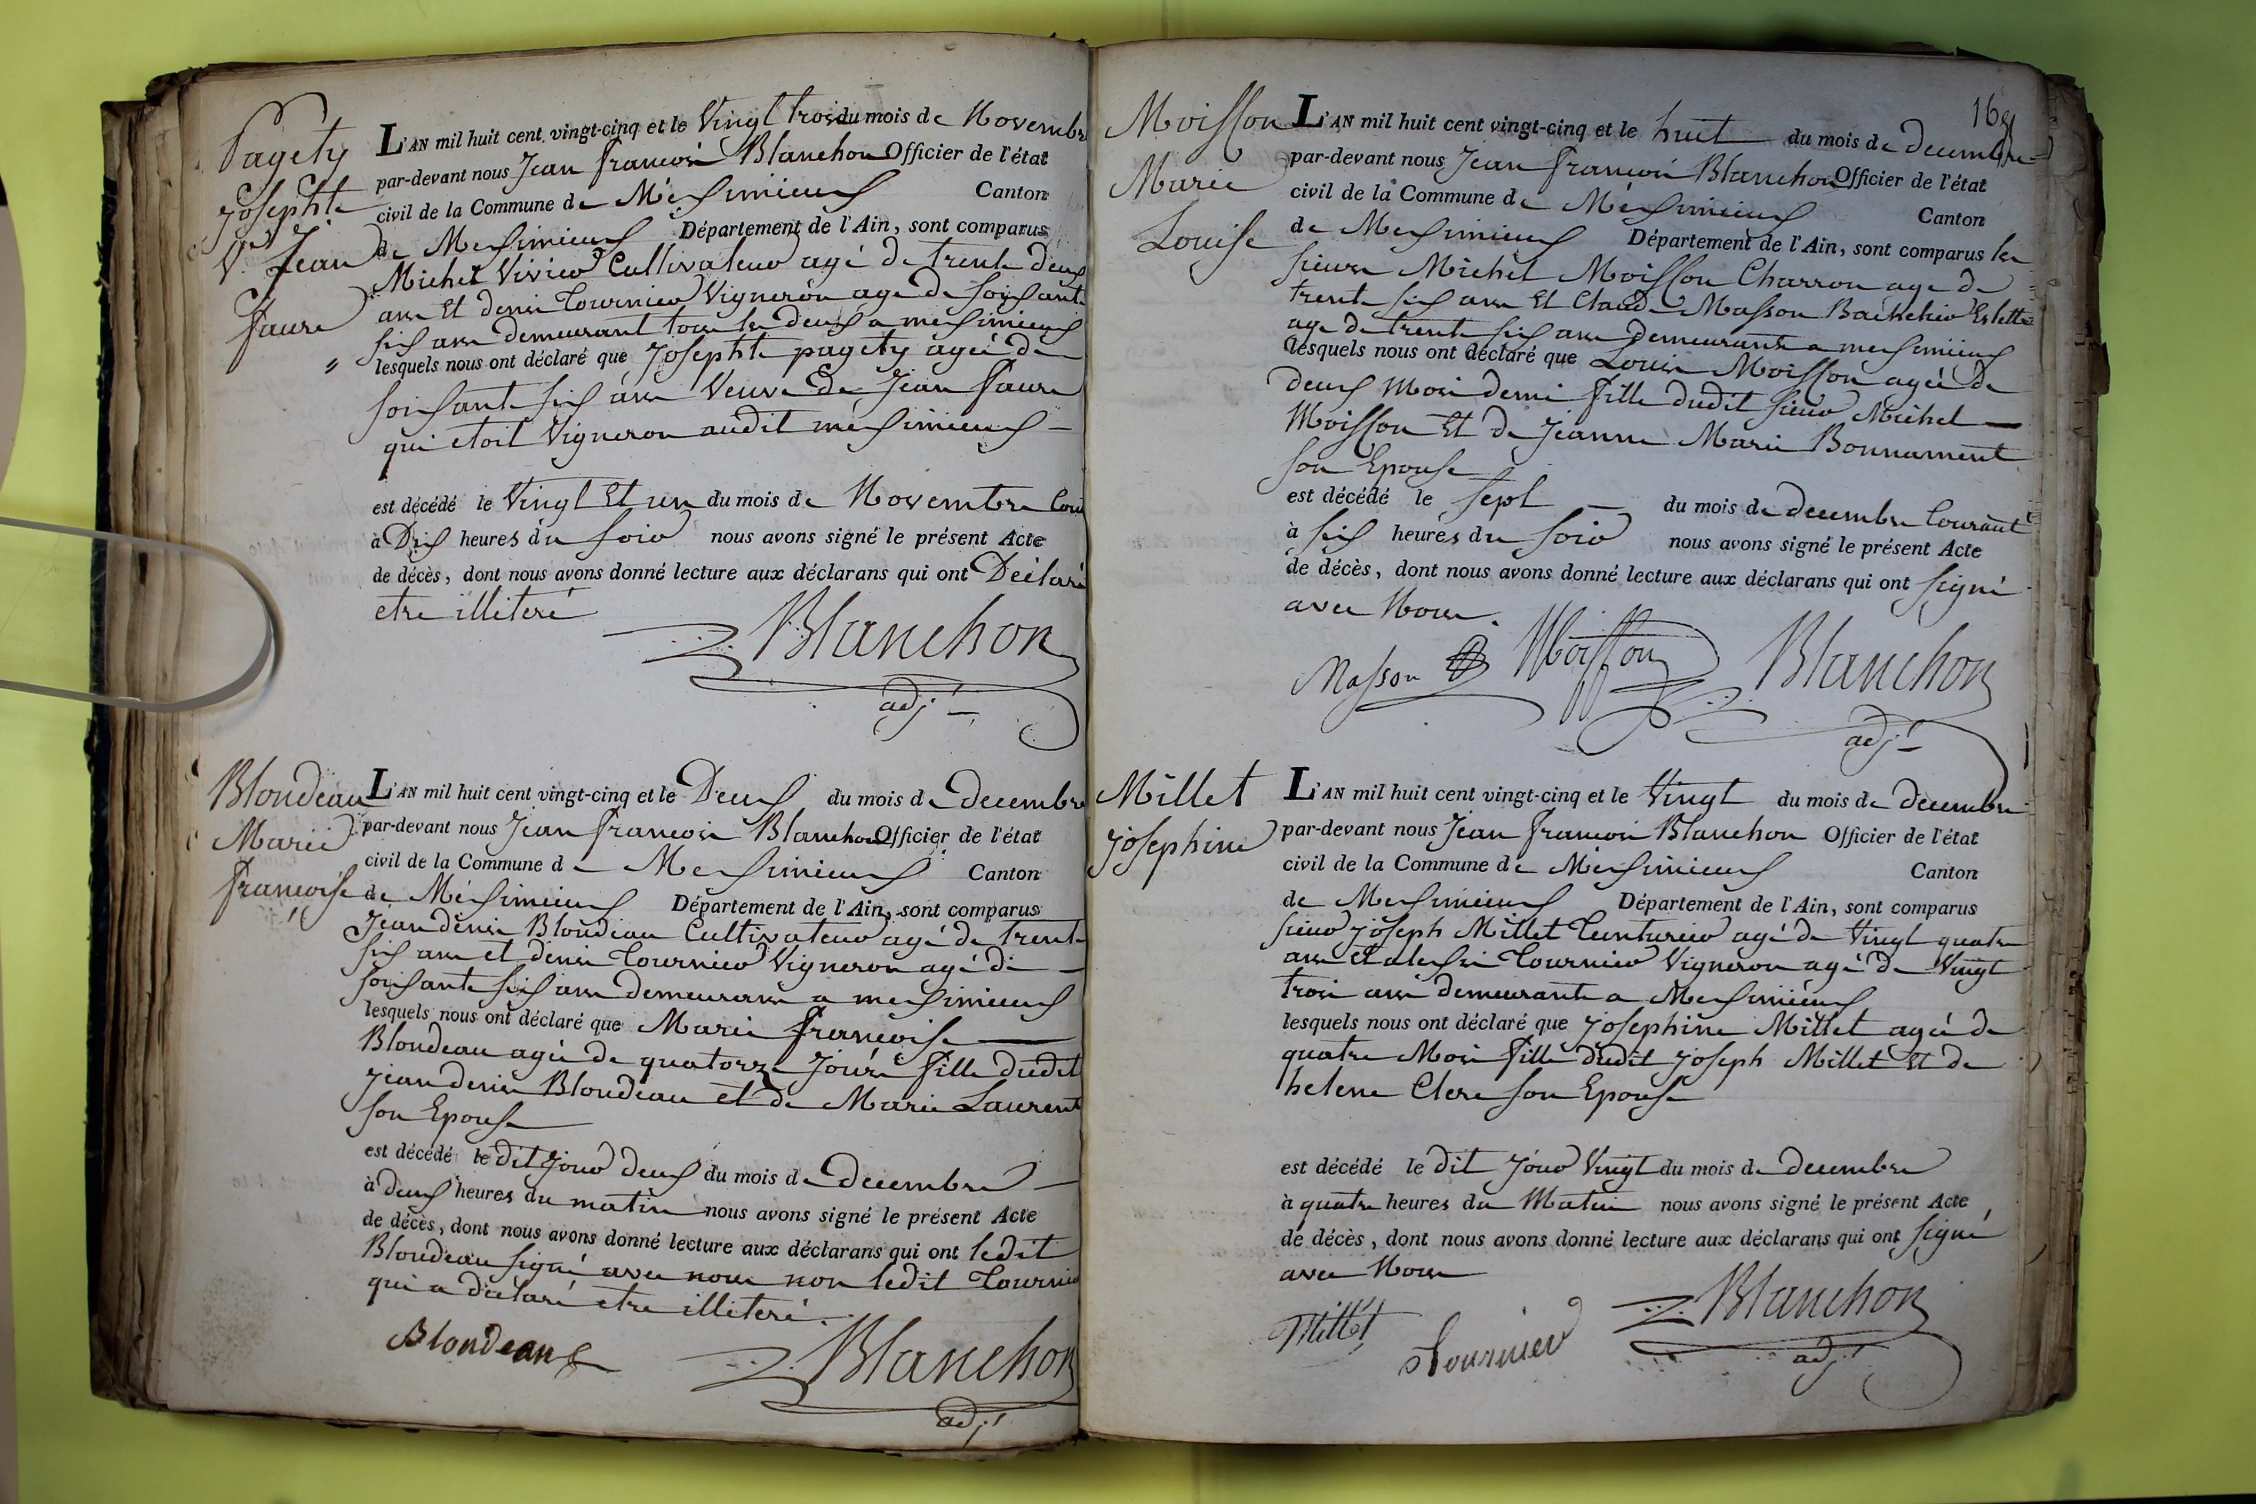 Pagety
Josephte
V. Jean
faure
L'AN mil huit cent vingt-cinq et le Vingt trois du mois de Novembre
par-devant nous Jean francois Blanchon Officier de l'état
civil de la Commune de Méximieux Canton
de Meximieux Département de l'Ain, sont comparus
Michel Vivier Cultivateur agé de trente deux
ans Et denis Tournier Vigneron agé de soixante
six ans demeurant tous les deux a meximieux
lesquels nous ont déclaré que Josephte pagety agée de
soixante six ans Veuve de Jean faure
qui etoit Vigneron audit méximieux
est décédé le Vingt Et un du mois de Novembre Cour
à Dix heures du soir nous avons signé le présent Acte
de décès, dont nous avons donné lecture aux déclarans qui ont Déclaré
etre illiteré
Blanchon
adj.t
Blondeau
Marie
francoise
L'AN mil huit cent vingt-cinq et le Deux du mois de decembre
par-devant nous Jean francois Blanchon Officier de l'état
civil de la Commune de Meximieux Canton
de Méximieux Département de l'Ain, sont comparus
Jean denis Blondeau Cultivateur agé de trente
six ans et denis Tournier Vigneron agé de
soixante six ans demeurans a meximieux
lesquels nous ont déclaré que Marie francoise
Blondeau agée de quatorze Jours fille dudit
Jean denis Blondeau et de Marie Laurent
son Epouse
est décédé le dit Jour deux du mois de decembre
à deux heures du matin nous avons signé le présent Acte
de décès, dont nous avons donné lecture aux déclarans qui ont ledit
Blondeau signé avec nous non ledit Tournier
qui a déclaré etre illiteré.
Blondeau
Blanchon
adj.t
168
Moisson
Marie
Louise
L'AN mil huit cent vingt-cinq et le huit du mois de decembre
par-devant nous Jean francois Blanchon Officier de l'état
civil de la Commune de Méximieux Canton
de Meximieux Département de l'Ain, sont comparus les
sieurs Michel Moisson Charron agé de
trente six ans Et Claude Masson Bachelier Es lettres
agé de trente six ans demeurants a meximieux
lesquels nous ont déclaré que Louise Moisson agée de
deux Mois demi fille dudit sieur Michel
Moisson Et de Jeanne Marie Bonnament
son Epouse
est décédé le sept du mois de decembre Courant
à six heures du soir nous avons signé le présent Acte
de décès, dont nous avons donné lecture aux déclarans qui ont signé
avec Nous.
Masson Moisson Blanchon
adj.t
Millet
Josephine
L'AN mil huit cent vingt-cinq et le Vingt du mois de decembre
par-devant nous Jean francois Blanchon Officier de l'état
civil de la Commune de Meximieux Canton
de Meximieux Département de l'Ain, sont comparus
sieur Joseph Millet Teinturier agé de Vingt quatre
ans Et alexi Tournier Vigneron agé de Vingt
trois ans demeurants a Meximieux
lesquels nous ont déclaré que Josephine Millet agée de
quatre Mois fille dudit Joseph Millet Et de
helene Clere son Epouse
est décédé le dit Jour Vingt du mois de decembre
à quatre heures du Matin nous avons signé le présent Acte
de décès, dont nous avons donné lecture aux déclarans qui ont signé
avec Nous
Millet Tournier Blanchon
adj.t